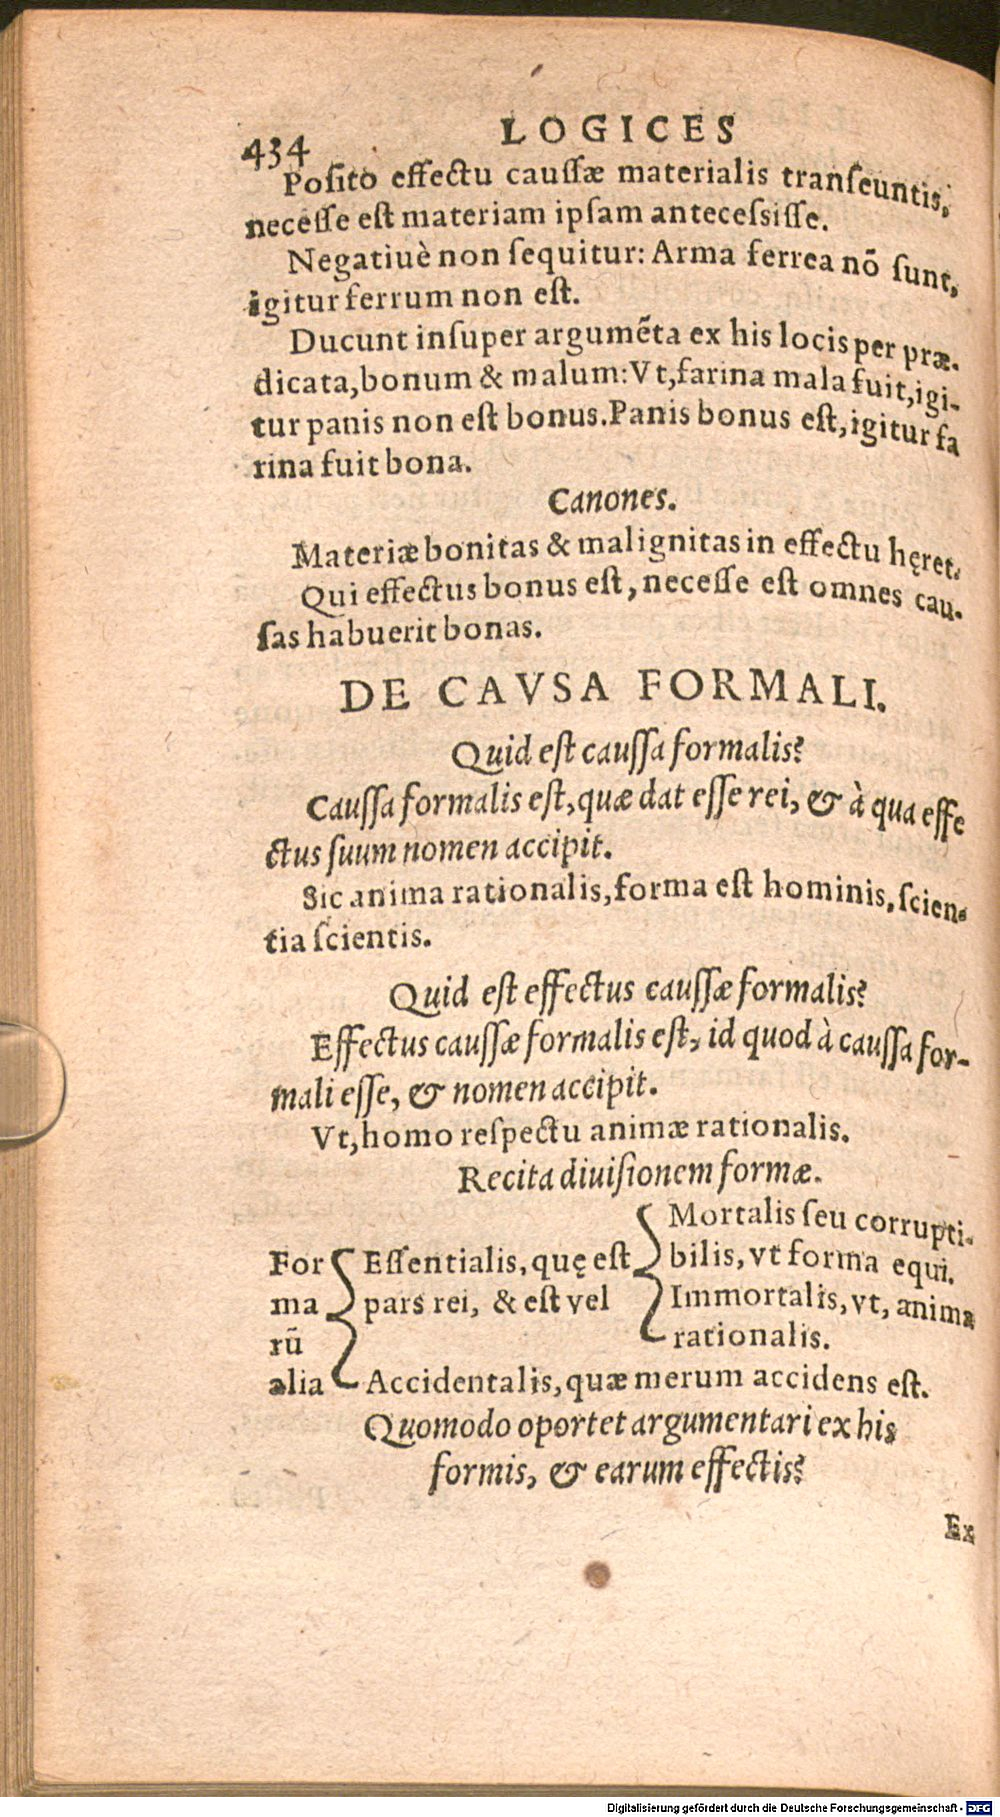 434 LOGICES
Posito effectu caussæ materialis transeuntis,
necesse est materiam ipsam antecessisse.
Negatiuè non sequitur: Arma ferrea nō sunt,
igitur ferrum non est.
Ducunt insuper argumēta ex his locis per præ-
dicata, bonum & malum: Vt, farina mala fuit, igi-
tur panis non est bonus. Panis bonus est, igitur fa
rina fuit bona.
Canones.
Materiæ bonitas & malignitas in effectu hęret.
Qui effectus bonus est, necesse est omnes cau-
sas habuerit bonas.
DE CAVSA FORMALI.
Quid est caussa formalis?
Caussa formalis est, quæ dat esse rei, & à qua effe
ctus suum nomen accipit.
Sic anima rationalis, forma est hominis, scien-
tia scientis.
Quid est effectus caussæ formalis?
Effectus caussæ formalis est, id quod à caussa for-
mali esse, & nomen accipit.
Vt, homo respectu animæ rationalis.
Recita diuisionem formæ.
For
ma
rū
alia
Essentialis, quę est
pars rei, & est vel
Mortalis seu corrupti-
bilis, vt forma equi.
Immortalis, vt, anima
rationalis.
Accidentalis, quæ merum accidens est.
Quomodo oportet argumentari ex his
formis, & earum effectis?
Ex
Digitalisierung gefördert durch die Deutsche Forschungsgemeinschaft - DFG